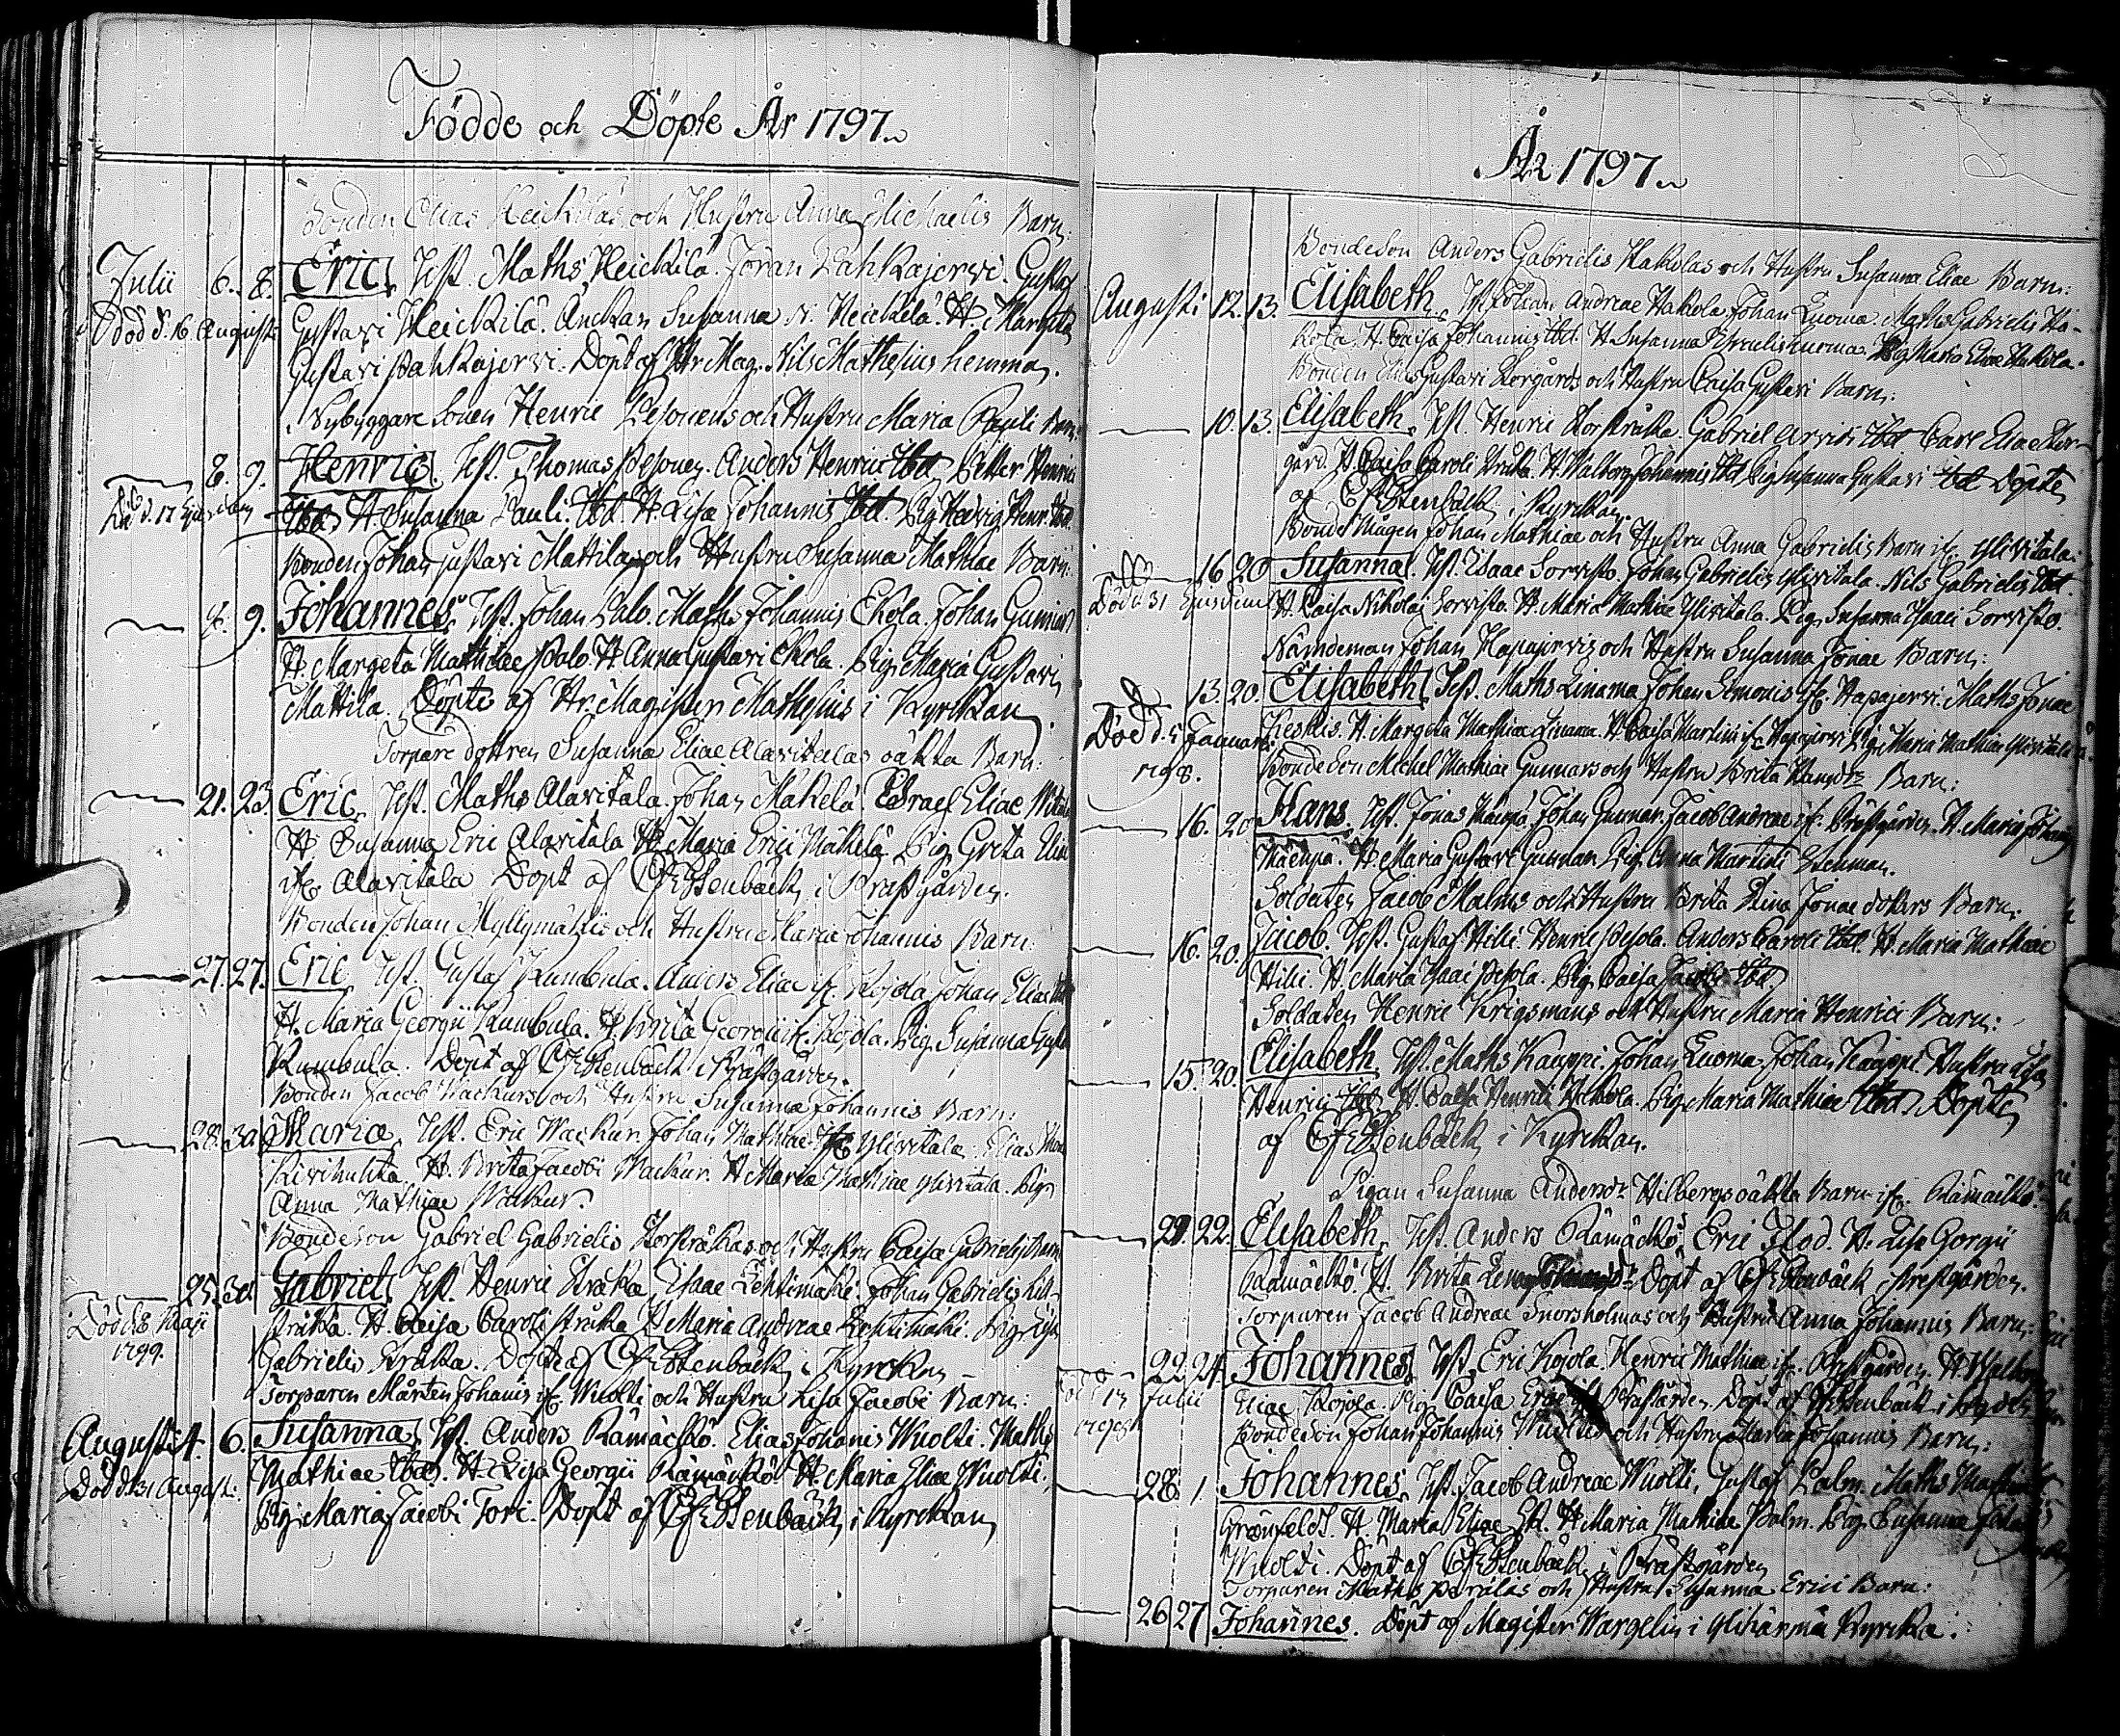 Födde och Döpte År 1797.
Bonden Elias Heickiläs och Hustru Anna Michaelis Barn:
Julii 6. 8. Eric. Test. Maths Heickilä. Jöran Pahkajerwi. Gustaf
Död d. 16 Augusti Gustavi Heickilä. Anckan Susanna N. Heickilä. H. Margeta
Gustavi Pahkajervi. Döpt af Hr. Mag. Nils Mathesius hemma.
Nybyggare Sonen Henric Pesonens och Hustru Maria Pauli Barn:
8. 9. Henric. Test. Thomas Pesonen. Anders Henrici Ibd. Petter Henrici
d. 17 Ejusdem Ibd. H. Susanna Pauli. Ibd. H. Lisa Johannis Ibd. Pig. Hedvig Henr. Ibd.
Bonden Johan Gustavi Mattilas och Hustru Susanna Mathiae Barn:
8. 9. Johannes. Test. Johan Palo. Maths Johannis Ekola. Johan Gunnar
H. Margeta Mathiae Palo. H. Anna Gustavi Ekola. Pig. Maria Gustavi
Mattila. Döpte af Hr. Magister Mathesius i Kyrckan.
Torpare dottren Susanna Eliae Alavitalas oäkta Barn:
21. 23. Eric. Test. Maths Alavitala. Johan Mäkelä. Esrael Eliae
H. Susanna Eric Alavitala H. Maria Erici Mäkelä Pig. Greta
if. Alavitala Döpt af CF Stenbäck i Prästgården.
Bonden Johan Myllymäkis och Hustru Maria Johannis Barn:
27. 27. Eric Test. Gustaf Kumbula. Anders Eliae if. Kojola Johan Eliae
H. Maria Georgii Kumbula. H. Brita Georgii if. Kojola. Pig. Susanna
Kumbula. Döpt af CF Stenbäck i Prästgården.
Bonden Jacob Wackurs och Hustru Susanna Johannis Barn:
28. 30. Maria. Test. Eric Wackur. Johan Mathiae if. Ylivitala. Elias
Kivihuhta. H. Brita Jacobi Wackur. H. Maria Mathiae Ylivitala. Pig.
Anna Mathiae Wackur.
Bondeson Gabriel Gabrielis Storstråkas och Hustru Caisa Gabrielis Barn
25. 30. Gabriel. Test. Henric Stråka, Isaac Lehtimäki. Johan Gabrielis Lill-
Död d. 8 Maji stråka. H. Caisa Caroli stråka H. Maria Andreae Lehtimäki. Pig. Lisa
1799. Gabrielis Stråka. Döpt af CF Stenbäck i Kyrckan
Torparen Mårten Johanis if. Wuolti och Hustru Lisa Jacobi Barn:
Augusti 4. 6. Susanna. Test. Anders Rämäckö. Elias Johanis Wuolti. Maths
Död d. 31 August: Mathiae Ibd. H. Lisa Georgii Rämäckö H. Maria Eliae Wuolti.
Pig. Maria Jacobi Tori. Döpt af CF Stenbäck i Kyrckan
År 1797.
Bondeson Anders Gabrielis Hakolas och Hustru Susanna Eliae Barn:
Augusti 12. 13. Elisabeth. Test. Johan Andreae Hakola Johan Luoma. Maths Gabrielis Ha-
kola. H. Caisa Johannis Ibd. H. Susanna Esraelis Luoma. Pig. Maria Eliae Hakola.
Bonden Elias Gustavi Storgårds och Hustru Caisa Gustavi Barn:
10. 13. Elisabeth. Test. Henric Storstråka Gabriel Arvidi Ibd. Carl Eliae Stor-
gård. H. Caisa Caroli Stråka. H. Walborg Johannis Ibd. Pig. Susanna Gustavi Ibd. Döpte
af CF Stenbäck i Kyrckan.
Bonde Mågen Johan Mathiae och Hustru Anna Gabrielis Barn if. Ylivitala:
16 20 Susanna. Test. Isaac Sorvisto. Johan Gabrielis Ylivitala. Nils Gabrielis Ibd.
Död d. 31 Ejusdem H. Caisa Nikolai Sorvisto. H. Maria Mathiae Ylivitala. Pig. Susanna Isaaci Sorvisto.
Nämdeman Johan Hapajervis och Hustru Susanna Jonae Barn:
13. 20. Elisabeth. Test. Maths Linama Johan Simonis if. Hapajervi. Maths Jonae
Död d. 5 Januarii H. Margeta Mathiae Linama. H. Caisa Martini if. Hapajervi Pig. Maria Mathiae Ylivitala
1798. Bondeson Michel Mathiae Gunnars och Hustru Brita Hansdr Barn:
16. 20. Hans. Test. Jonas Mäenpä. Johan Gunnar. Jacob Andreae if. Prästgården. H. Maria Johans
Mäenpä. H. Maria Gustavi Gunnar. Pig. Anna Martini Stenman.
Soldaten Jacob Malms och Hustru Brita Stina Jonae dotters Barn:
16. 20. Jacob. Test. Gustaf Hili. Henric Pesola. Anders Caroli Ibd. H. Maria Mathiae
Hili. H. Maria Isaci Pesola. Pig. Caisa Jacobi Ibd.
Soldaten Henric Krigsmans och Hustru Maria Henrici Barn:
15. 20. Elisabeth. Test. Maths Kauppi. Johan Luoma. Johan Kauppi. Hustru Lisa
Henrici Ibd. H. Caisa Henrici Hakola. Pig. Maria Mathiae Ibd. Döpte
af CF Stenbäck i Kyrckan.
Pigan Susanna Andersdr Hilbergs oäkta Barn if. Rämäckö.
21. 22. Elisabeth. Test. Anders Rämäckö, Eric Flod. H. Lisa Gorgii
Rämäckö. H. Brita Lena Döpt af CF Stenbäck Prestgården.
Torparen Jacob Andreae Snorsholmas och Hustru Anna Johannis Barn:
22. 24. Johannes. Test. Eric Kojola. Henric Mathiae if. Prestgården. H. Walbor
Julii Eliae Kojola. Pig. Caisa Prästården. Döpt af CF Stenbäck i
Bondeson Johan Johannis Wuoltis och Hustru Maria Johannis Barn:
28. 1. Johannes. Test. Jacob Andreae Wuolti, Gustaf Palm. Maths
Grönfeldt. H. Maria Eliae H. Maria Mathiae Palm. Pig. Susanna
Wuolti. Döpt af CF Stenbäck i Prästgården
Torparen Maths Perälas och Hustru Susanna Erici Barn:
26 27 Johannes. Döpt af Magister Wargelin i Ylihärmä Kyrcka.